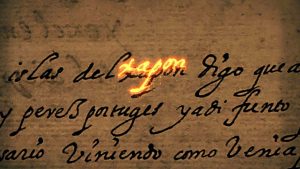 islas del xapon digo que a
y pereß portuges yadifunto
sario Viniendo como Venia